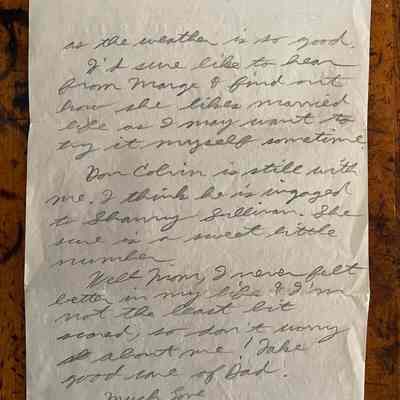 as the weather is so good.
I'd sure like to hear
from Marge & find out
how she likes married
life as I may want to
try it myself sometime
Don Colvin is still with
me. I think he is ingaged
to Shanny Sullivan. She
sure is a sweet little
number.
Well Mom, I never felt
better in my life & I'm
not the least bit
scared, so don't worry
about me! Take
good care of Dad.
Much Love